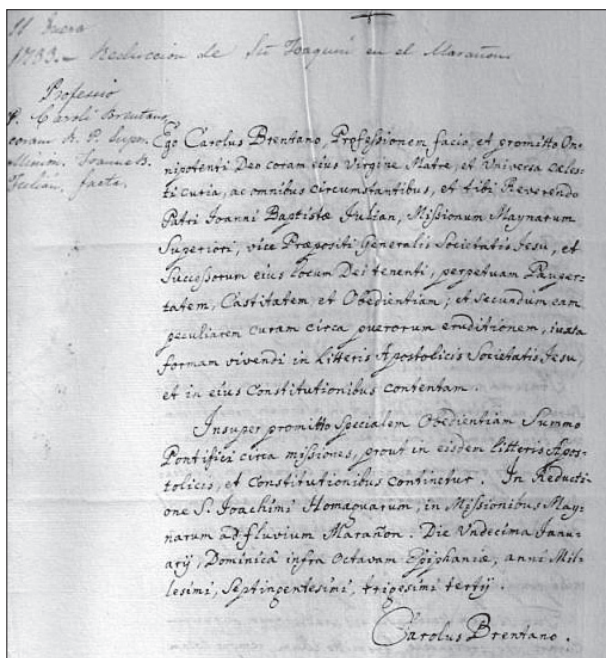 11 Enero
1733.- Reduccion de Sn Joaquin en el Marañon
Professio
P. Caroli Brentano
coram R. P. Super.
Joanne B.
Julián, facta.
Ego Carolus Brentano, Professionem facio, et promitto Om-
nipotenti Deo coram eius Virgine Matre, et Vniversa cæles-
ti curia, ac omnibus circumstantibus, et tibi Reverendo
Patri Joanni Baptistæ Julian, Missionum Maynarum
Superiori, vice Præpositi Generalis Societatis Jesu, et
Successorum eius locum Dei tenenti, perpetuam Pauper-
tatem, Castitatem, et Obedientiam; et secundum eam
peculiarem curam circa puerorum eruditionem, iuxta
formam vivendi in Litteris Apostolicis Societatis Jesu,
et in eius Constitutionibus contentam.
Insuper promitto specialem Obedientiam Summo
Pontifici circa missiones, prout in eisdem Litteris Apos-
tolicis, et Constitutionibus continetur. In Reducti-
one S. Joachimi Homaguarum, in Missionibus May-
narum ad fluvium Marañon. Die Vndecima Janu-
arij, Dominicâ infra Octavam Epiphaniæ, anni Mil-
lesimi, Septingentesimi, trigesimi tertij.
Carolus Brentano.